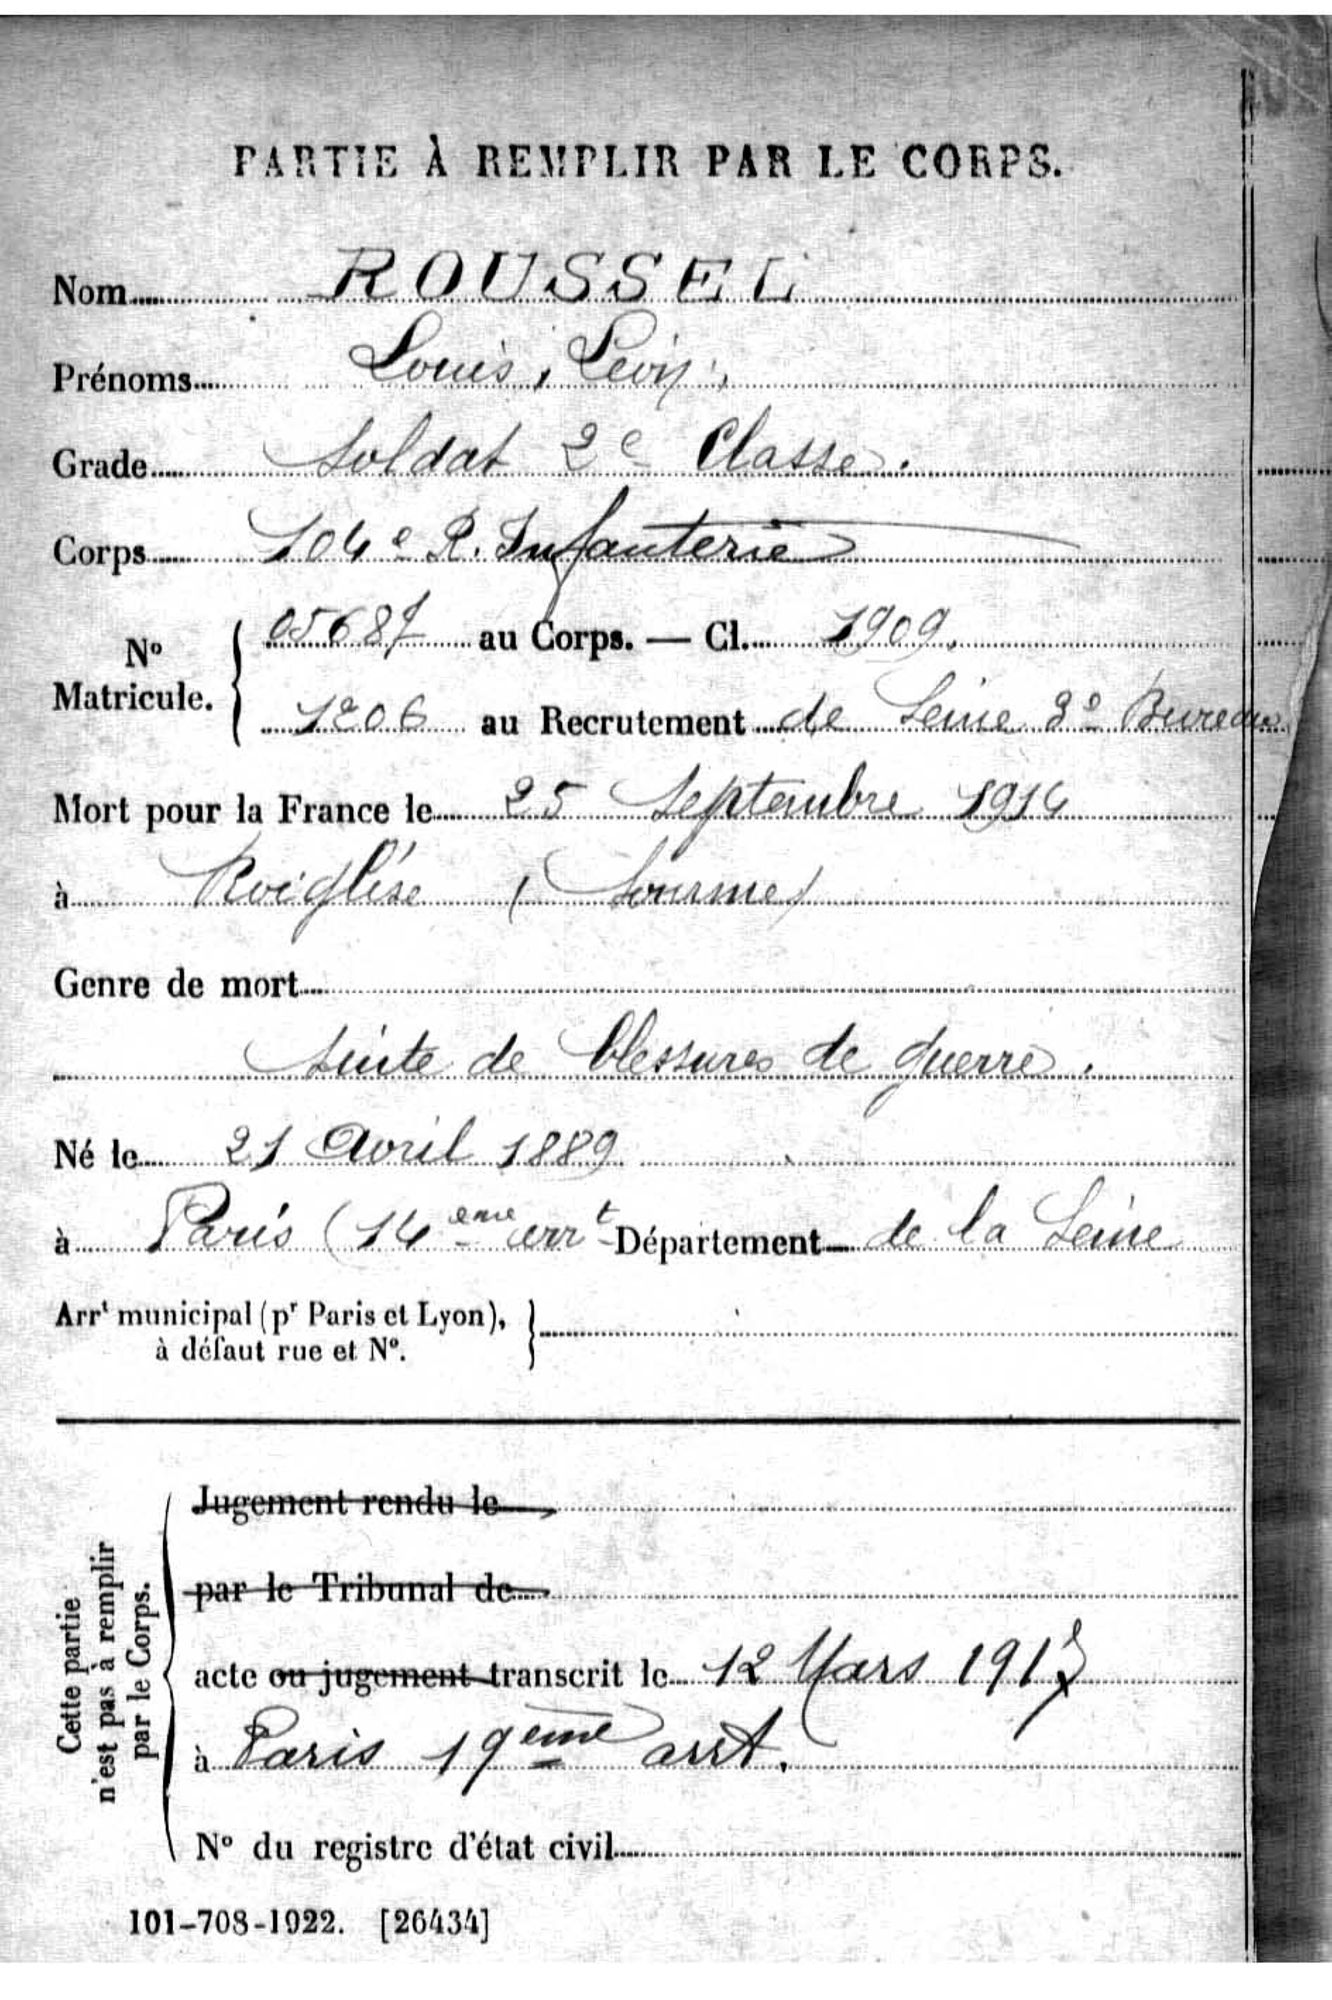 PARTIE À REMPLIR PAR LE CORPS.
Nom ROUSSEL
Prénoms Louis, Lévy,
Grade Soldat 2e Classe.
Corps 104e R. Infanterie
No Matricule. 05687 au Corps. — Cl. 1909.
1206 au Recrutement de Seine 3e Bureau
Mort pour la France le 25 Septembre 1914
à Roiglise (Somme)
Genre de mort
suite de blessures de guerre.
Né le 21 Avril 1889
à Paris (14eme arrt Département de la Seine
Arrt municipal (pr Paris et Lyon),
à défaut rue et No.
Cette partie
n'est pas à remplir
par le Corps.
Jugement rendu le
par le Tribunal de
acte ou jugement transcrit le 12 Mars 1917
à Paris 19eme arrt.
No du registre d'état civil
101-708-1922. [26434]